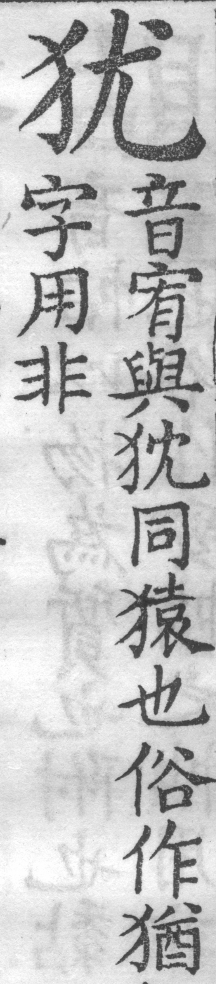 犹
音宥與狖同猿也俗作猶
字用非